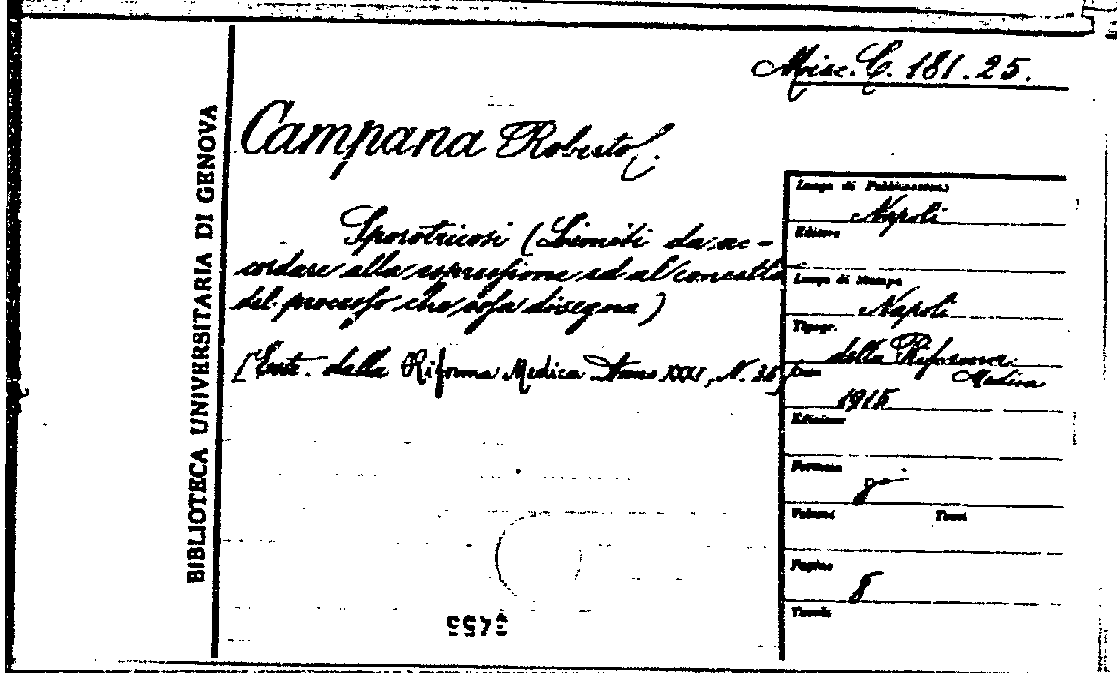 Misc. C. 181. 25.
BIBLIOTECA UNIVERSITARIA DI GENOVA
Campana Roberto.
Sporotricosi (Limiti da ac-
cordare alla espressione ed al concetto
del processo che essa disegna)
[Estr. dalla Riforma Medica Anno XXXI, N. 38]
Luogo di Pubblicazione
Napoli
Editore
Luogo di Stampa
Napoli
Tipogr.
della Riforma
Medica
1915
Edizione
Formato
8°
Volumi Tomi
Pagine
8
Tavole